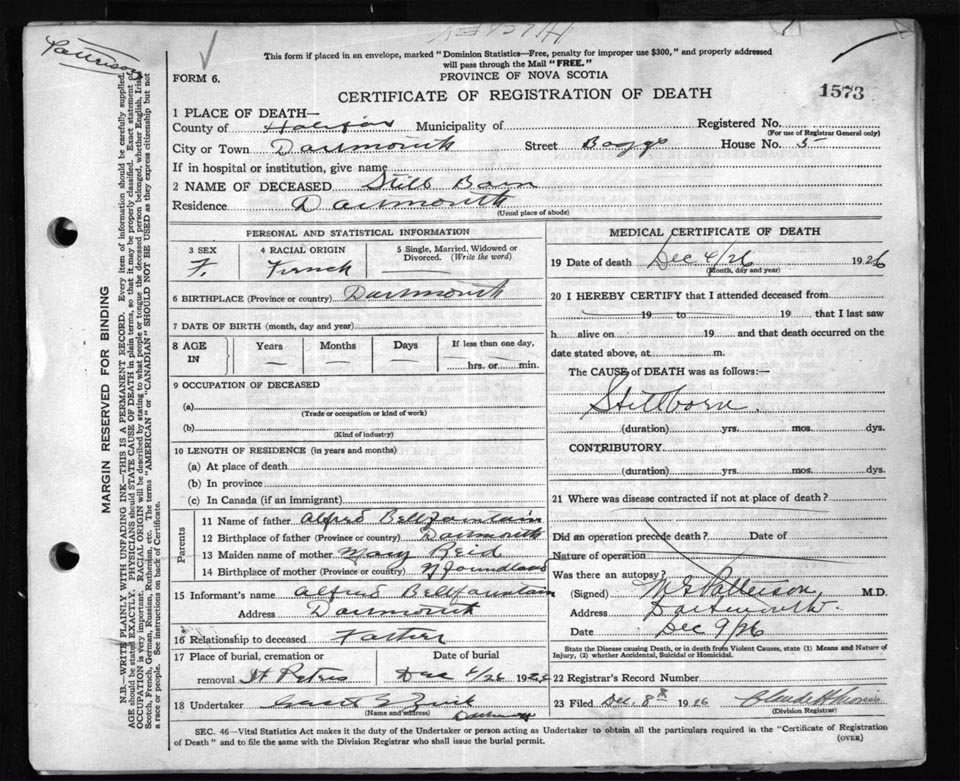 Patterson
This form if placed in an envelope, marked "Dominion Statistics—Free, penalty for improper use $300," and properly addressed
will pass through the Mail "FREE."
FORM 6.
PROVINCE OF NOVA SCOTIA
CERTIFICATE OF REGISTRATION OF DEATH
1573
1 PLACE OF DEATH—
County of Halifax Municipality of Registered No.
(For use of Registrar General only)
City or Town Dartmouth Street Boggs House No. 5
If in hospital or institution, give name
2 NAME OF DECEASED Still Born
Residence Dartmouth
(Usual place of abode)
PERSONAL AND STATISTICAL INFORMATION
3 SEX 4 RACIAL ORIGIN 5 Single, Married, Widowed or
Divorced. (Write the word)
F. French
6 BIRTHPLACE (Province or country) Dartmouth
7 DATE OF BIRTH (month, day and year)
8 AGE IN Years Months Days If less than one day,
hrs. or min.
9 OCCUPATION OF DECEASED
(a)
(Trade or occupation or kind of work)
(b)
(Kind of industry)
10 LENGTH OF RESIDENCE (in years and months)
(a) At place of death
(b) In province
(c) In Canada (if an immigrant)
Parents
11 Name of father Alfred Bellfountain
12 Birthplace of father (Province or country) Dartmouth
13 Maiden name of mother Mary Reid
14 Birthplace of mother (Province or country) Nfoundland
15 Informant's name Alfred Bellfountain
Address Dartmouth
16 Relationship to deceased Father
17 Place of burial, cremation or Date of burial
removal St Peters Dec 4/26 1926
18 Undertaker
(Name and address) Dartmouth
MEDICAL CERTIFICATE OF DEATH
19 Date of death Dec 4/26 1926
(Month, day and year)
20 I HEREBY CERTIFY that I attended deceased from
19 to 19 that I last saw
h alive on 19 and that death occurred on the
date stated above, at m.
The CAUSE of DEATH was as follows:—
Stillborn.
(duration) yrs. mos. dys.
CONTRIBUTORY.
(duration) yrs. mos. dys.
21 Where was disease contracted if not at place of death?
Did an operation precede death? Date of
Nature of operation
Was there an autopsy?
(Signed) Patterson, M.D.
Address Dartmouth.
Date Dec 9/26
State the Disease causing Death, or in death from Violent Causes, state (1) Means and Nature of
Injury, (2) whether Accidental, Suicidal or Homicidal.
22 Registrar's Record Number
23 Filed Dec. 8th 1926
(Division Registrar)
SEC. 46—Vital Statistics Act makes it the duty of the Undertaker or person acting as Undertaker to obtain all the particulars required in the "Certificate of Registration
of Death" and to file the same with the Division Registrar who shall issue the burial permit.
(OVER)
MARGIN RESERVED FOR BINDING
N.B.—WRITE PLAINLY WITH UNFADING INK—THIS IS A PERMANENT RECORD. Every item of information should be carefully supplied.
AGE should be stated EXACTLY. PHYSICIANS should STATE CAUSE OF DEATH in plain terms, so that it may be properly classified. Exact statement of
OCCUPATION is very important. RACIAL ORIGIN will be described by stating to what people or tongue the deceased person belonged, whether English, Irish,
Scotch, French, German, Russian, Ruthenian, etc. The terms "AMERICAN" or "CANADIAN" SHOULD NOT BE USED as they express citizenship but not
a race or people. See instructions on back of Certificate.